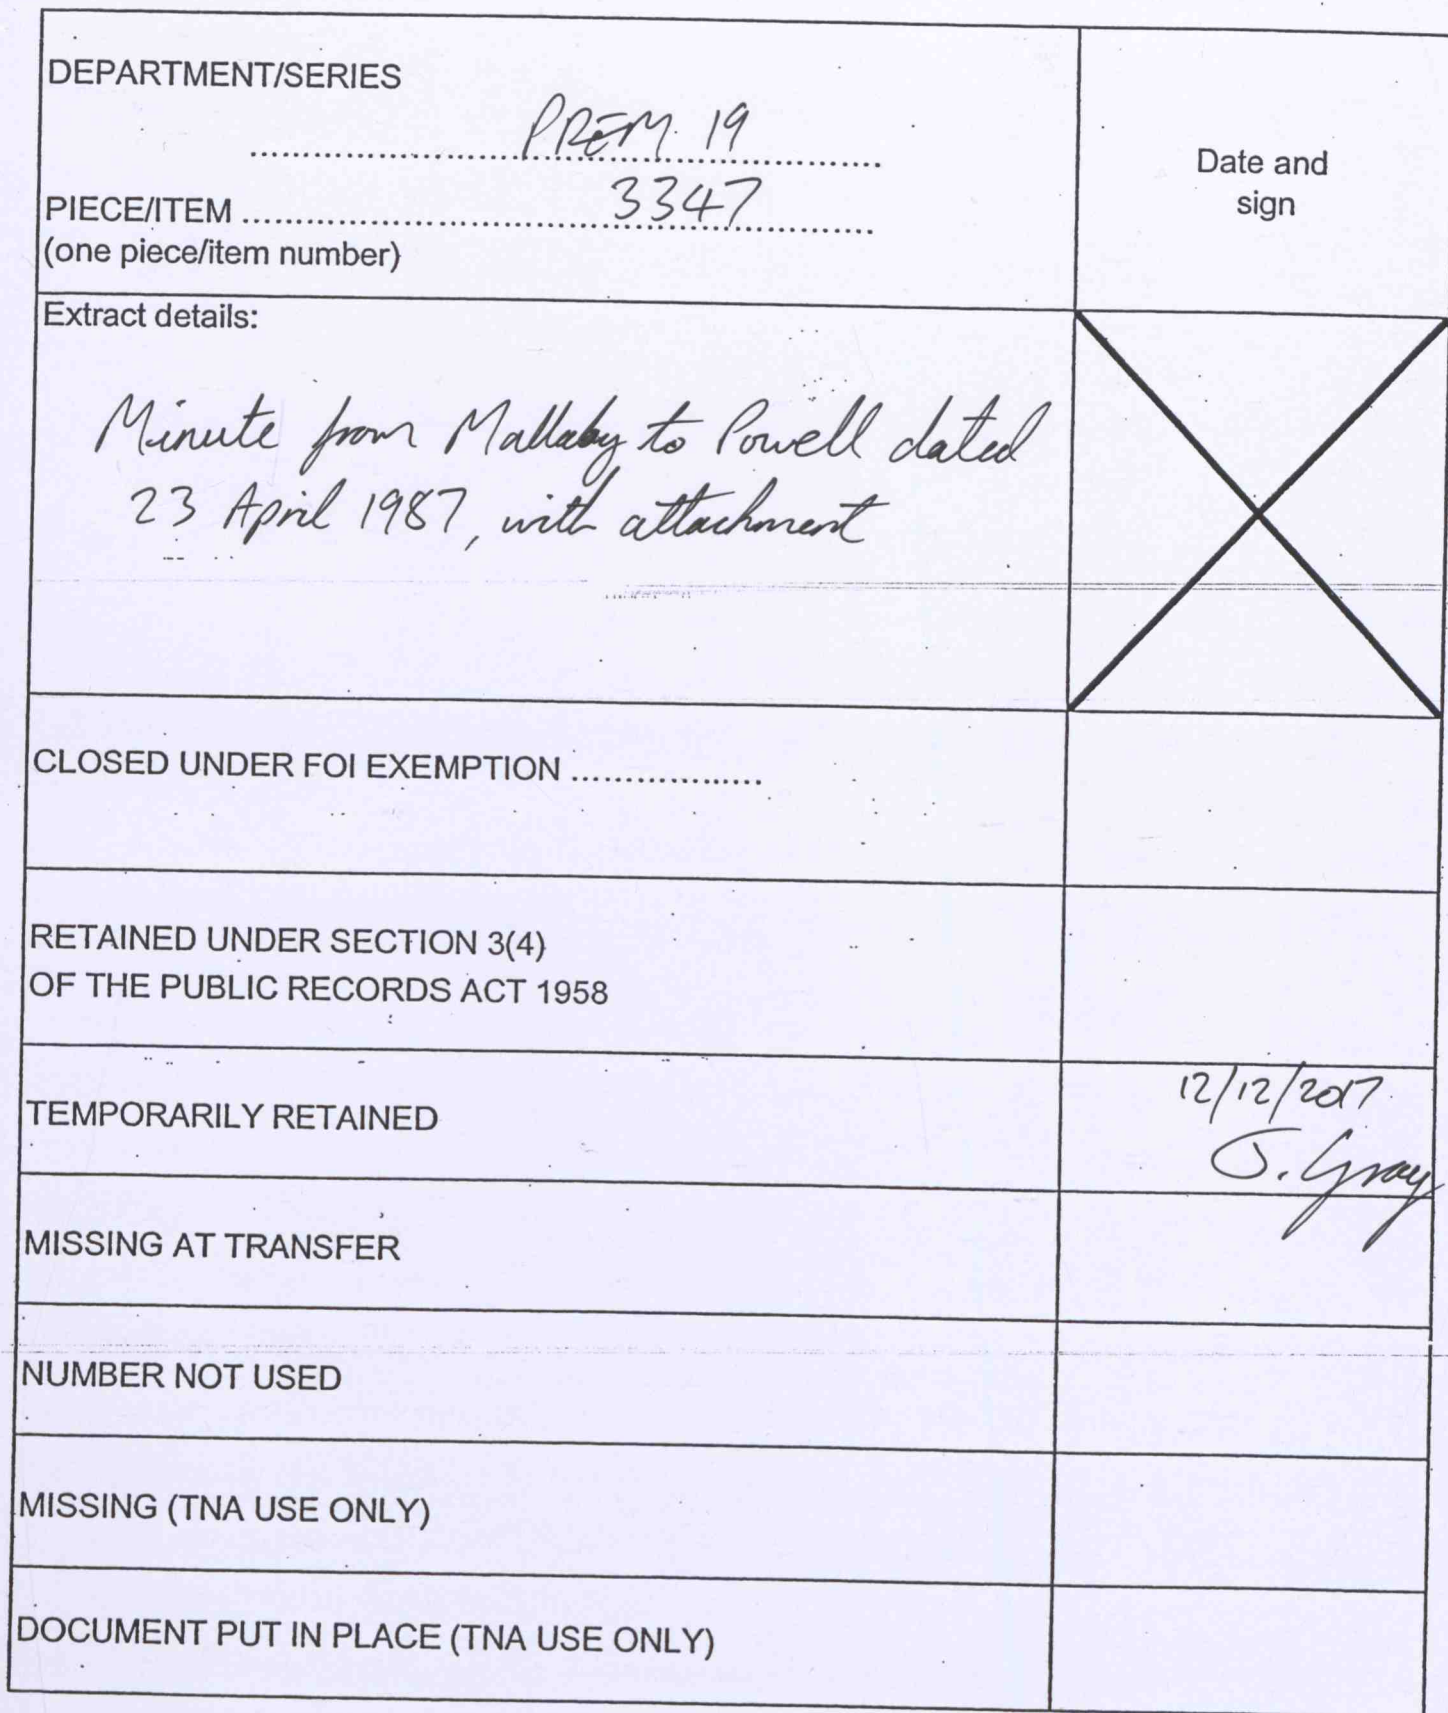 DEPARTMENT/SERIES
PREM 19
PIECE/ITEM 3347
(one piece/item number)
Date and
sign
Extract details:
Minute from Mallaby to Powell dated
23 April 1987, with attachment
CLOSED UNDER FOI EXEMPTION ..................
RETAINED UNDER SECTION 3(4)
OF THE PUBLIC RECORDS ACT 1958
TEMPORARILY RETAINED
12/12/2017
J. Gray
MISSING AT TRANSFER
NUMBER NOT USED
MISSING (TNA USE ONLY)
DOCUMENT PUT IN PLACE (TNA USE ONLY)